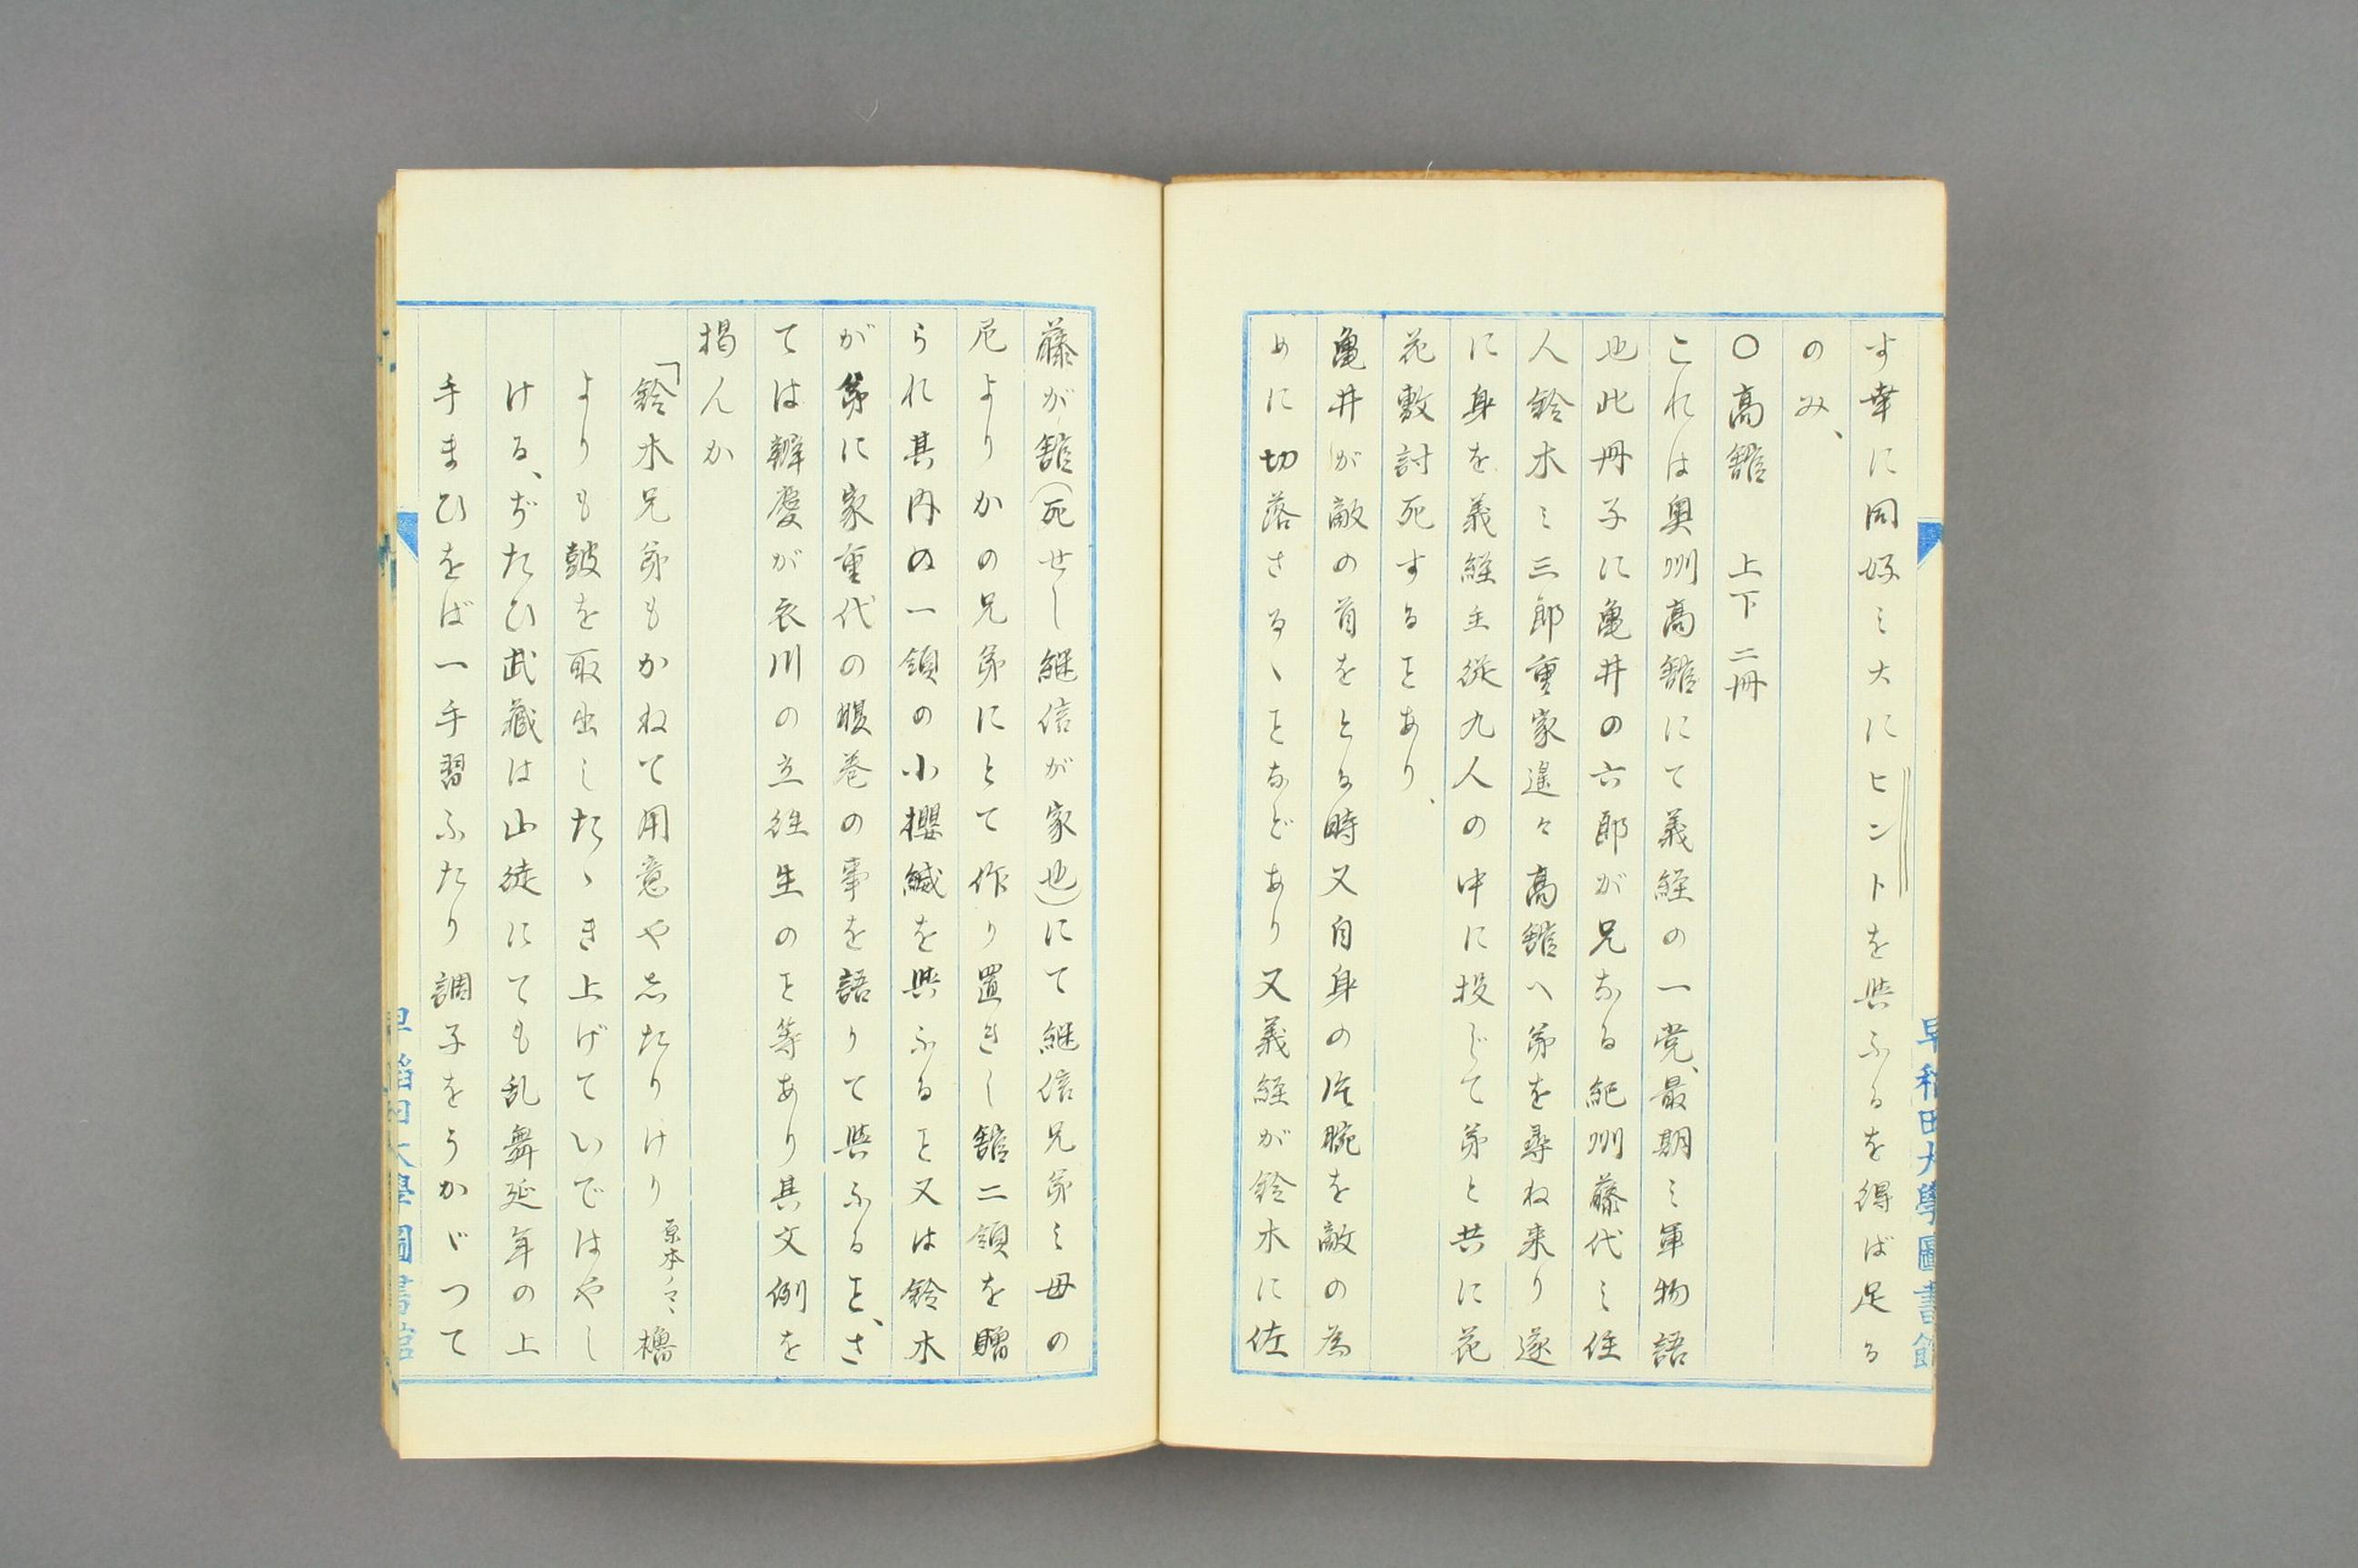 す幸に同好ミ大にヒントを與ふるを得ば足る
のみ、
〇高舘　上下二冊
これは奥州高舘にて義経の一党、最期ミ軍物語
也此冊子に亀井の六郎が兄なる紀州藤代ミ住
人鈴木ミ三郎重家遙々高舘へ弟を尋ね来り遂
に身を義経主従九人の中に投じて弟と共に花
花敷討死するヿあり、
亀井が敵の首をとる時又自身の片腕を敵の為
めに切落さるヽヿなどあり又義経が鈴木に佐
藤が舘(死せし継信が家也)にて継信兄弟ミ母の
尼よりかの兄弟にとて作り置きし舘二領を贈
られ其内の一領の小櫻縅を與ふるヿ又は鈴木
が弟に家重代の腹巻の事を語りて與ふるヿ、さ
ては辨慶が衣川の立往生のヿ等あり其文例を
掲んか
「鈴木兄弟もかねて用意や志たりけり原本ノマヽ櫓
よりも鼓を取出したゝき上げていではやし
ける、ぢたひ武藏は山徒にても乱舞延年の上
手まひをば一手習ふたり調子をうかゞつて
早稲田大學圖書館
早稲田大學圖書館